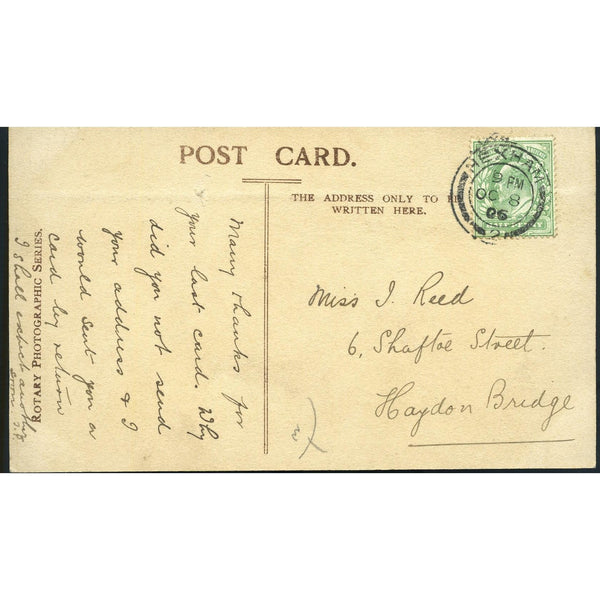 POST CARD.
THE ADDRESS ONLY TO BE
WRITTEN HERE.
HEXHAM
9 PM
OC 8
06
Miss J. Reed
6, Shaftoe Street.
Haydon Bridge
Many thanks for
your last card. Why
did you not send
your address & I
would sent you a
card by return
I shall expect another
soon
ROTARY PHOTOGRAPHIC SERIES.